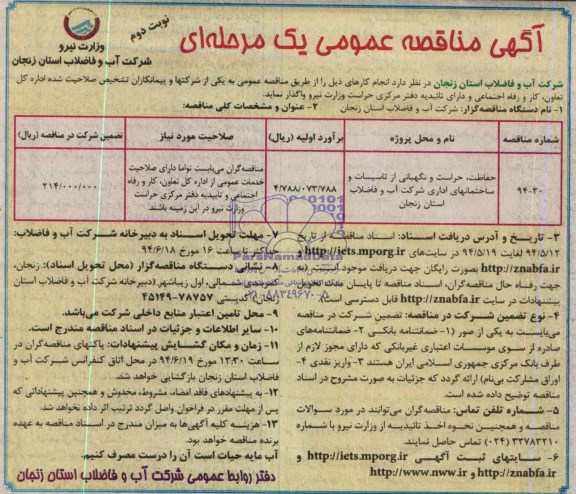 نوبت دوم
وزارت نیرو
شرکت آب و فاضلاب استان زنجان
آگهی مناقصه عمومی یک مرحله‌ای
شرکت آب و فاضلاب استان زنجان در نظر دارد انجام کارهای ذیل را از طریق مناقصه عمومی به یکی از شرکتها و پیمانکاران تشخیص صلاحیت شده اداره کل
تعاون، کار و رفاه اجتماعی و دارای تائیدیه دفتر مرکزی حراست وزارت نیرو واگذار نماید.
۱- نام دستگاه مناقصه‌گزار: شرکت آب و فاضلاب استان زنجان ۲- عنوان و مشخصات کلی مناقصه:
شماره مناقصه
نام و محل پروژه
برآورد اولیه (ریال)
صلاحیت مورد نیاز
تضمین شرکت در مناقصه (ریال)
۹۴-۳۰
حفاظت، حراست و نگهبانی از تاسیسات و
ساختمانهای اداری شرکت آب و فاضلاب
استان زنجان
۴/۷۸۸/۰۷۳/۷۸۸
مناقصه‌گران می‌بایست تواما دارای صلاحیت
خدمات عمومی از اداره کل تعاون، کار و رفاه
اجتماعی و تاییدیه دفتر مرکزی حراست
وزارت نیرو در این زمینه باشند.
۲۱۴/۰۰۰/۰۰۰
۳- تاریخ و آدرس دریافت اسناد: اسناد مناقصه از تاریخ
۹۴/۵/۱۲ لغایت ۹۴/۵/۱۹ در سایت‌های http://iets.mporg.ir و
http://znabfa.ir بصورت رایگان جهت دریافت موجود است (به
جهت رفاه حال مناقصه‌گران، اسناد مناقصه تا پایان مدت تحویل
پیشنهادات در سایت http://znabfa.ir قابل دسترسی است).
۴- نوع تضمین شرکت در مناقصه: تضمین شرکت در مناقصه
می‌بایست به یکی از صور (۱- ضمانتنامه بانکی ۲- ضمانتنامه‌های
صادره از سوی موسسات اعتباری غیربانکی که دارای مجوز لازم از
طرف بانک مرکزی جمهوری اسلامی ایران هستند ۳- واریز نقدی ۴-
اوراق مشارکت بی‌نام) ارائه گردد که جزئیات به صورت مشروح در اسناد
مناقصه توضیح داده شده است.
۵- شماره تلفن تماس: مناقصه‌گران می‌توانند در مورد سوالات
مناقصه و همچنین نحوه اخذ تائیدیه از وزارت نیرو با شماره
۳۳۷۸۳۲۱۰ (۰۲۴) تماس حاصل نمایند.
۶- سایتهای ثبت آگهی http://iets.mporg.ir و
http://znabfa.ir و http://www.nww.ir
۷- مهلت تحویل اسناد به دبیرخانه شرکت آب و فاضلاب:
حداکثر تا ساعت ۱۶ مورخ ۹۴/۶/۱۸
۸- نشانی دستگاه مناقصه‌گزار (محل تحویل اسناد): زنجان،
کمربندی شمالی، اول زیباشهر (دبیرخانه شرکت آب و فاضلاب استان
زنجان) کدپستی ۷۸۷۵۷-۴۵۱۴۹
۹- محل تامین اعتبار منابع داخلی شرکت می‌باشد.
۱۰- سایر اطلاعات و جزئیات در اسناد مناقصه مندرج است.
۱۱- زمان و مکان گشایش پیشنهادات: پاکتهای مناقصه‌گران در
ساعت ۱۳:۳۰ مورخ ۹۴/۶/۱۹ در محل اتاق کنفرانس شرکت آب و
فاضلاب استان زنجان بازگشایی خواهد شد.
۱۲- به پیشنهادهای فاقد امضاء، مشروط، مخدوش و همچنین پیشنهاداتی که
پس از مهلت مقرر در فراخوان واصل گردد ترتیب اثر داده نخواهد شد.
۱۳- هزینه کلیه آگهی‌ها به میزان مندرج در اسناد مناقصه به عهده
برنده مناقصه خواهد بود.
آب مایه حیات است آن را درست مصرف کنیم.
دفتر روابط عمومی شرکت آب و فاضلاب استان زنجان
۰۲۱-۸۸۳۴۹۶۷۰-۵